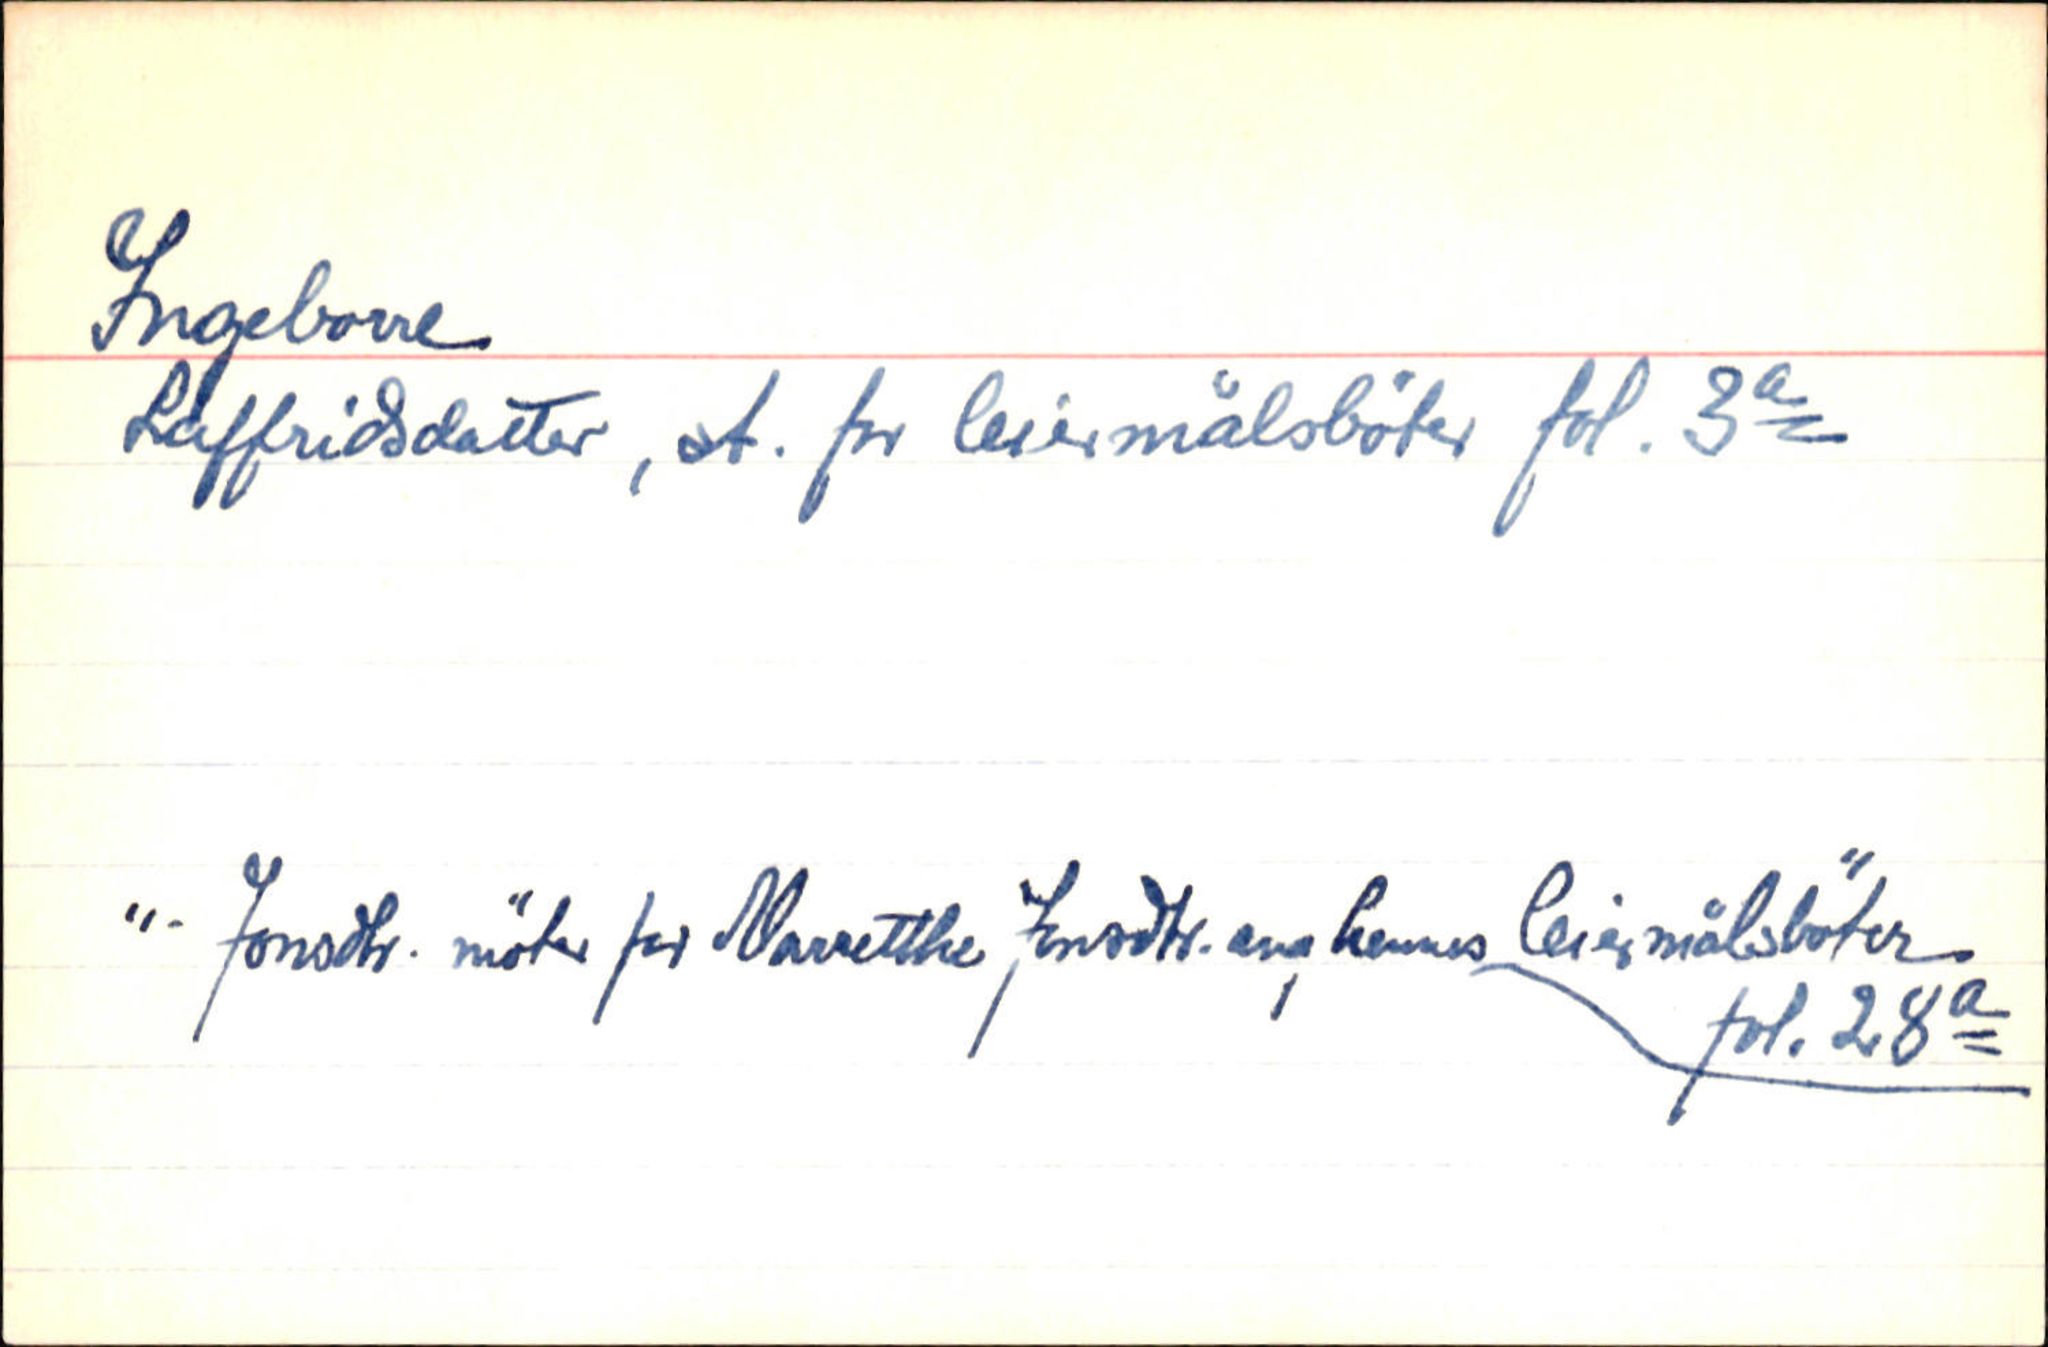 Ingeborre
Laffridsdatter, st. for leiermålsböter fol. 3a
"- Jonsdtr. möter for Marretthe Jonsdtr. ang hennes leiermålsböter
fol. 28a